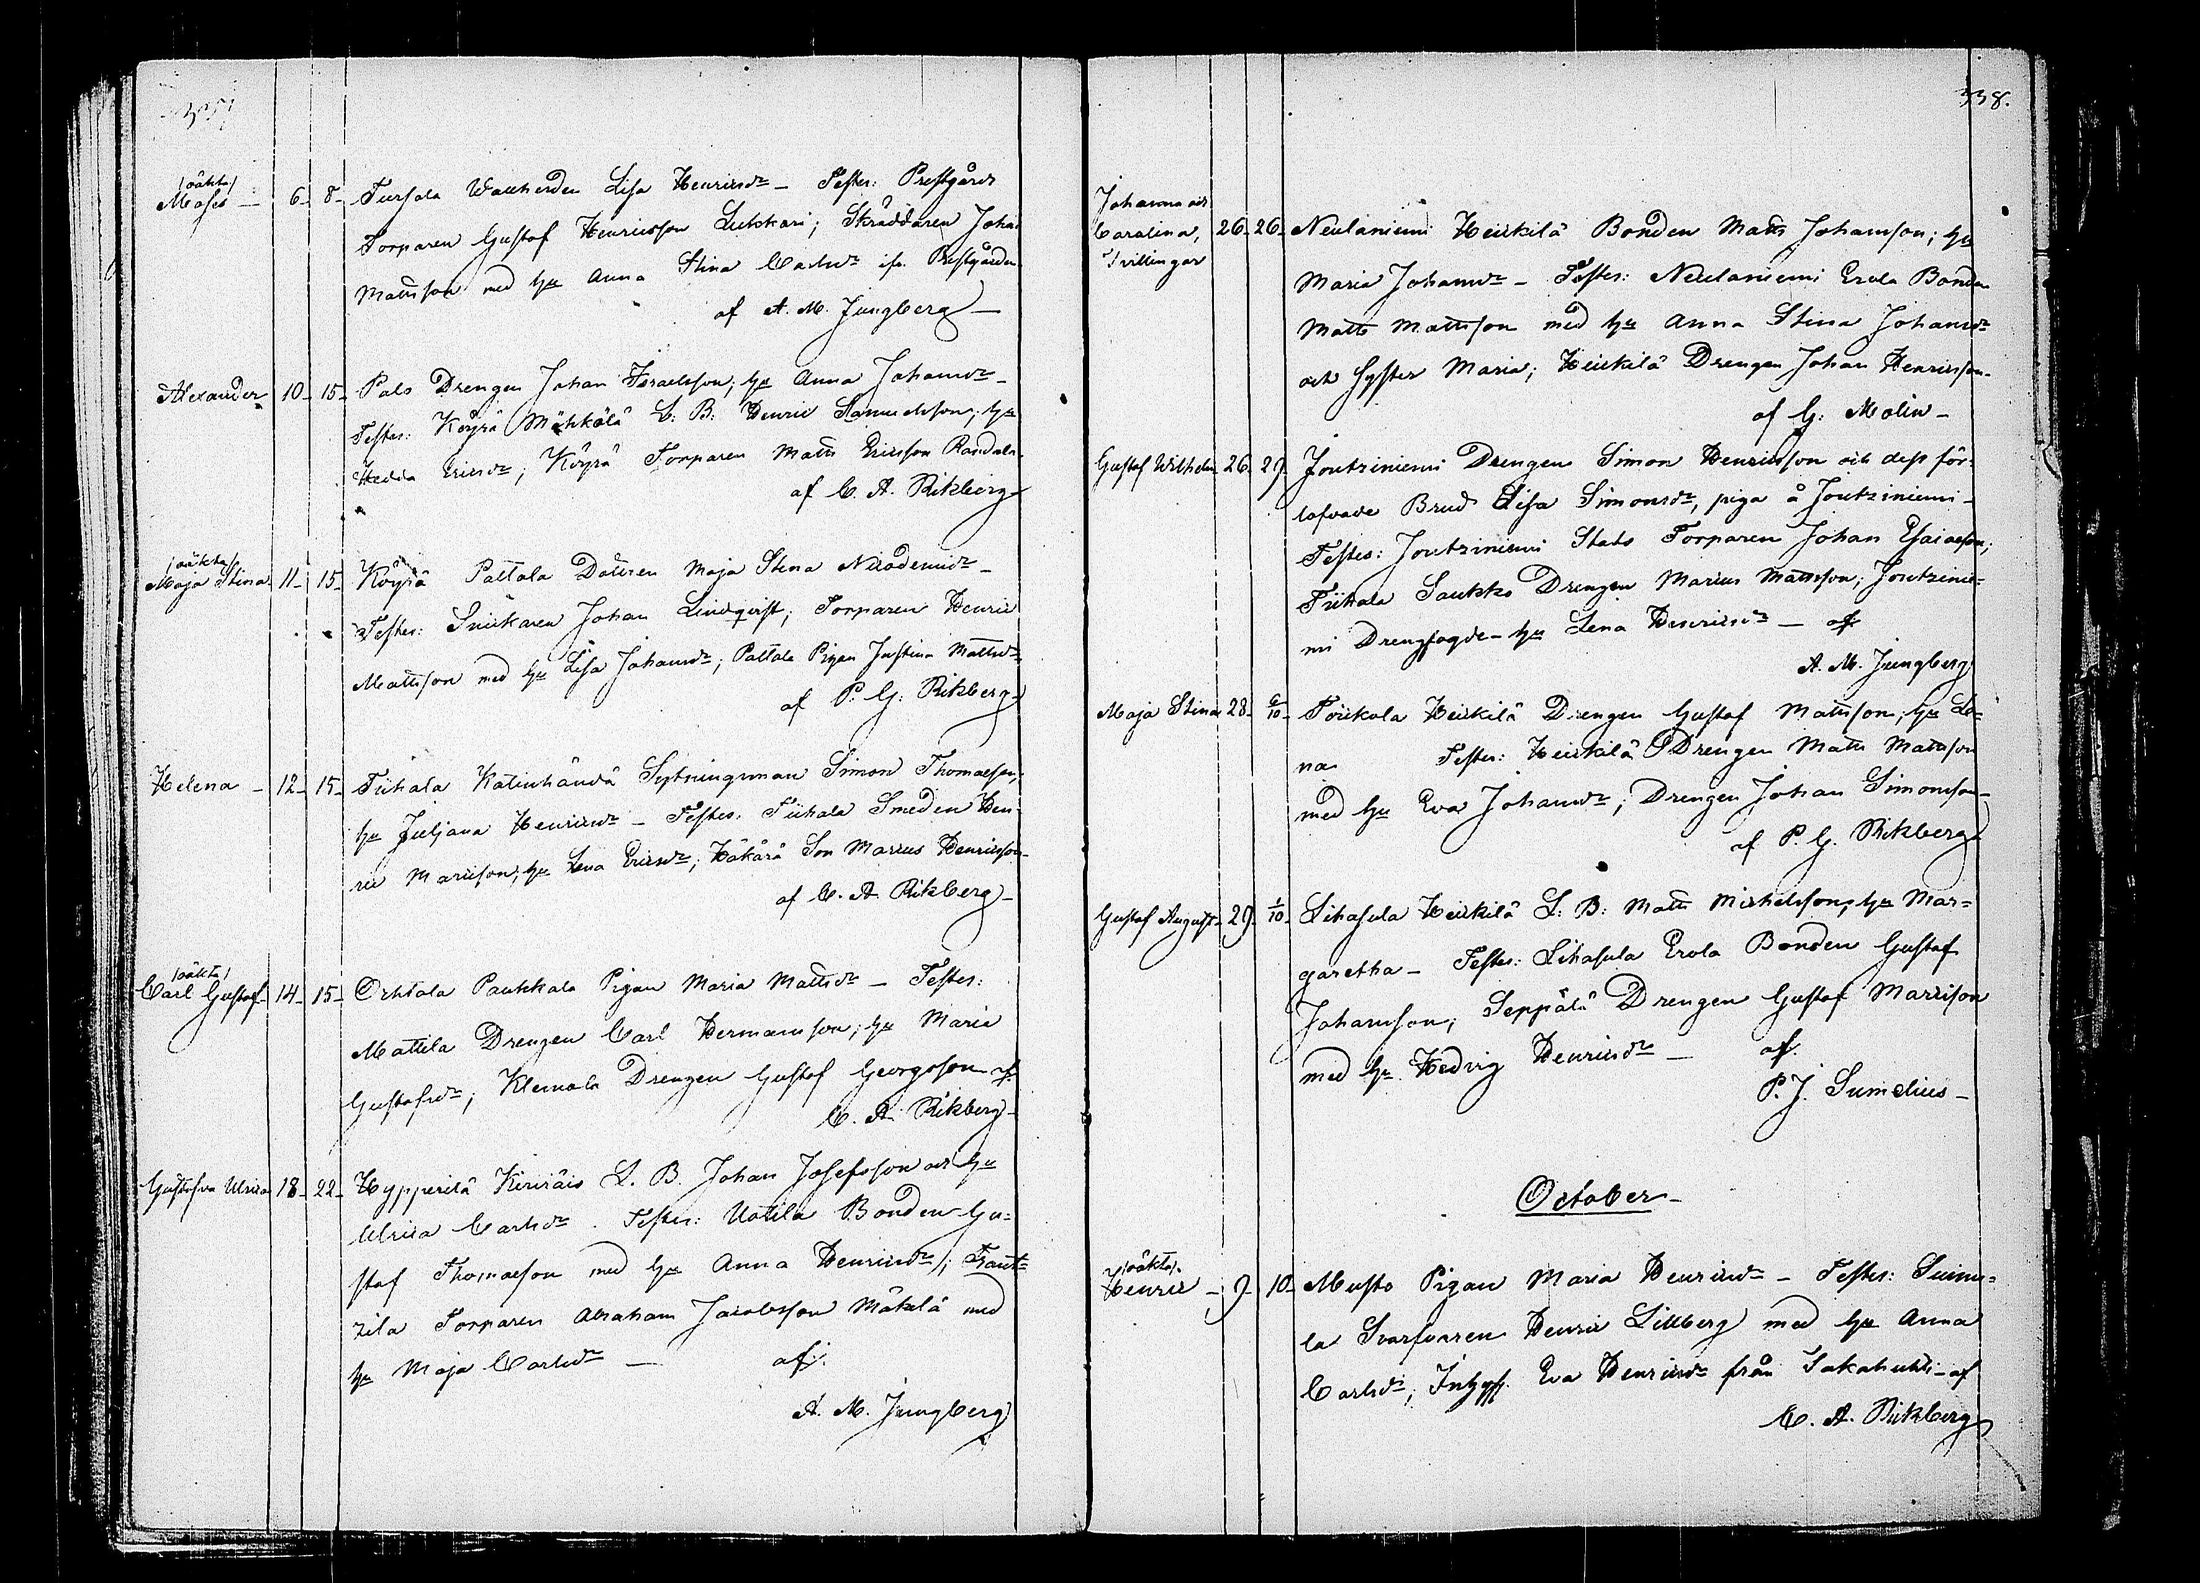 /oäkta/
Moses — 6. 8. Tursala Wallherden Lisa Henricsdr — Testes: Prestgårds
Torparen Gustaf Henricsson Lukkari; Skräddaren Johan
Mattsson med hu Anna Stina Carlsdr ifr. Prestgården
af A. M. Jungberg —
Alexander 10. 15. Palo Drengen Johan Israelsson; hu Anna Johansdr —
Testes: Köyrä Mähkälä L. B. Henric Samuelsson; hu
Hedda Ericsdr; Köyrä Torparen Matts Ericsson Randala.
af C. A. Rikberg
/oäkta/
Maja Stina 11. 15. Köyrä Pattala Dottren Maja Stina Nicodemidr —
Testes: Snickaren Johan Lindqvist; Torparen Henric
Mattsson med hu Lisa Johansdr; Pattala Pigan Justina Mattsdr
af P. G. Rikberg
Helena — 12. 15. Tiihala Katinhändä Sytningsman Simon Thomasson,
hu Juljana Henricsdr — Testes: Tiihala Smeden Hen-
ric Maricsson, hu Lena Ericsdr; Häkärä Son Marcus Henricsson
af C. A. Rikberg —
/oäkta/
Carl Gustaf 14. 15. Ochtola Paukkala Pigan Maria Mattsdr — Testes:
Mattila Drengen Carl Hermansson; hu Maria
Gustafsdr; Klemola Drengen Gustaf Georgsson af
C. A. Rikberg —
Gustafva Ulrica 18. 22. Hypperilä Kiviräis L. B. Johan Josefsson och hu
Ulrica Carlsdr. Testes: Uotila Bonden Gu-
staf Thomasson med hu Anna Henricsdr; Tant-
zila Torparen Abraham Jacobsson Mäkelä med
hu Maja Carlsdr — af.
A. M. Jungberg
338.
Johanna och
Carolina, 26. 26. Neulaniemi Heickilä Bonden Matts Johansson; hu
Tvillingar
Maria Johansdr — Testes: Neulaniemi Erola Bonden
Matts Mattsson med hu Anna Stina Johansdr
och Syster Maria; Heickilä Drengen Johan Henricsson.
af G. Molin —
Gustaf Wilhelm 26. 29. Joutziniemi Drengen Simon Henricsson och dess för-
lofvade Brud Lisa Simonsdr, piga å Joutziniemi —
Testes: Joutziniemi Stats Torparen Johan Esaiasson;
Tiihala Saukko Drengen Marcus Mattsson; Joutzinie-
mi Drengfogde — hu Lena Henricsdr — af
A. M. Jungberg
Maja Stina 28. 6/10. Toickala Heickilä Drengen Gustaf Mattsson; hu Le-
na Testes: Heickilä Drengen Matts Mattsson
med hu Eva Johansdr; Drengen Johan Simonsson —
af P. G. Rikberg
Gustaf August 29. 1/10. Lihasula Heickilä L. B. Matts Michelsson, hu Mar-
garetha — Testes: Lihasula Erola Bonden Gustaf
Johansson; Seppälä Drengen Gustaf Maricsson
med hu Hedvig Henricsdr — af.
P. J. Sumelius —
October —
/oäkta/
Henric — 9. 10. Musto Pigan Maria Henricsdr — Testes: Suinu-
la Svarfvaren Henric Lillberg med hu Anna
Carlsdr; Inhys. Eva Henricsdr från Sakahuhti — af
C. A. Rikberg